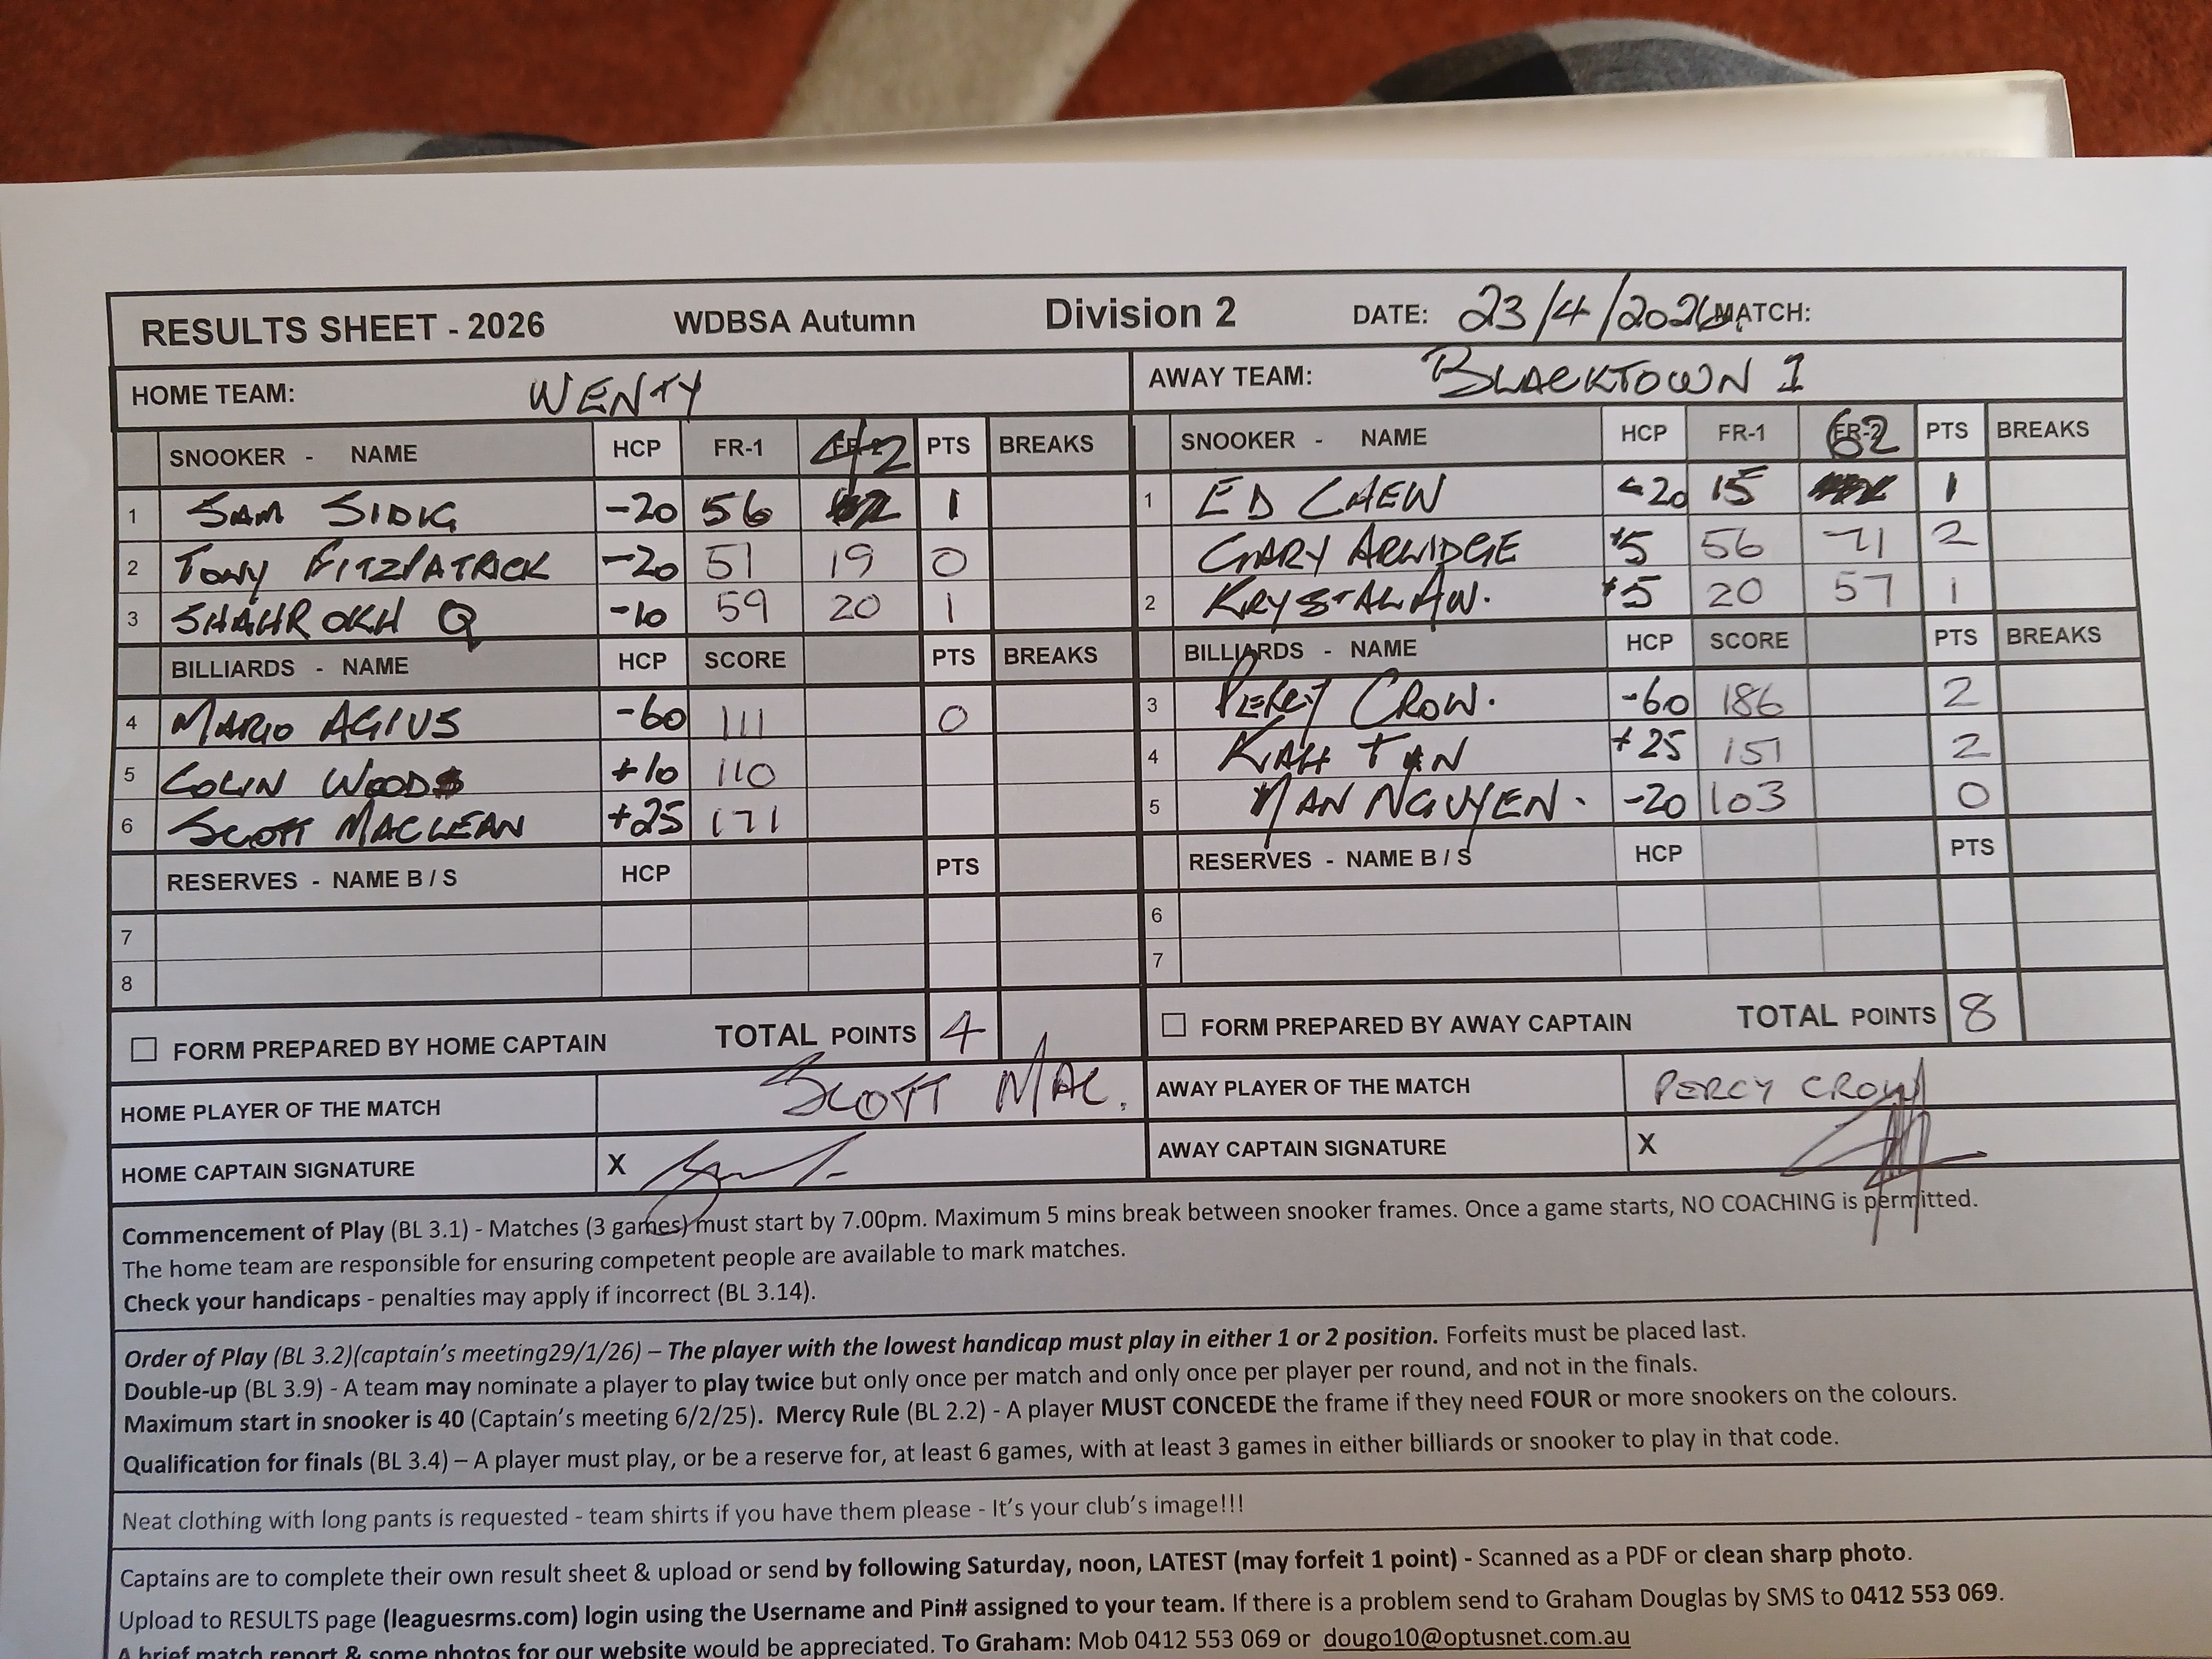 RESULTS SHEET - 2026 WDBSA Autumn Division 2 DATE: 23/4/2026 MATCH:
HOME TEAM: WENTY AWAY TEAM: BLACKTOWN 1
SNOOKER - NAME HCP FR-1 42 PTS BREAKS SNOOKER - NAME HCP FR-1 62 PTS BREAKS
1 SAM SIDIG -20 56 1 1 ED CHEW -20 15 1
2 TONY FITZPATRICK -20 51 19 0 GARY ARLIDGE +5 56 71 2
3 SHAHROKH Q -10 59 20 1 2 KRYSTAL AW. +5 20 57 1
BILLIARDS - NAME HCP SCORE PTS BREAKS BILLIARDS - NAME HCP SCORE PTS BREAKS
4 MARIO AGIUS -60 111 0 3 PERCY CROW. -60 186 2
5 COLIN WOODS +10 110 4 KIAH TAN +25 151 2
6 SCOTT MACLEAN +25 171 5 MAN NGUYEN. -20 103 0
RESERVES - NAME B / S HCP PTS RESERVES - NAME B / S HCP PTS
7 6
8 7
FORM PREPARED BY HOME CAPTAIN TOTAL POINTS 4 FORM PREPARED BY AWAY CAPTAIN TOTAL POINTS 8
HOME PLAYER OF THE MATCH SCOTT MAC. AWAY PLAYER OF THE MATCH PERCY CROW
HOME CAPTAIN SIGNATURE X AWAY CAPTAIN SIGNATURE X
Commencement of Play (BL 3.1) - Matches (3 games) must start by 7.00pm. Maximum 5 mins break between snooker frames. Once a game starts, NO COACHING is permitted.
The home team are responsible for ensuring competent people are available to mark matches.
Check your handicaps - penalties may apply if incorrect (BL 3.14).
Order of Play (BL 3.2)(captain's meeting29/1/26) – The player with the lowest handicap must play in either 1 or 2 position. Forfeits must be placed last.
Double-up (BL 3.9) - A team may nominate a player to play twice but only once per match and only once per player per round, and not in the finals.
Maximum start in snooker is 40 (Captain's meeting 6/2/25). Mercy Rule (BL 2.2) - A player MUST CONCEDE the frame if they need FOUR or more snookers on the colours.
Qualification for finals (BL 3.4) – A player must play, or be a reserve for, at least 6 games, with at least 3 games in either billiards or snooker to play in that code.
Neat clothing with long pants is requested - team shirts if you have them please - It's your club's image!!!
Captains are to complete their own result sheet & upload or send by following Saturday, noon, LATEST (may forfeit 1 point) - Scanned as a PDF or clean sharp photo.
Upload to RESULTS page (leaguesrms.com) login using the Username and Pin# assigned to your team. If there is a problem send to Graham Douglas by SMS to 0412 553 069.
A brief match report & some photos for our website would be appreciated. To Graham: Mob 0412 553 069 or dougo10@optusnet.com.au